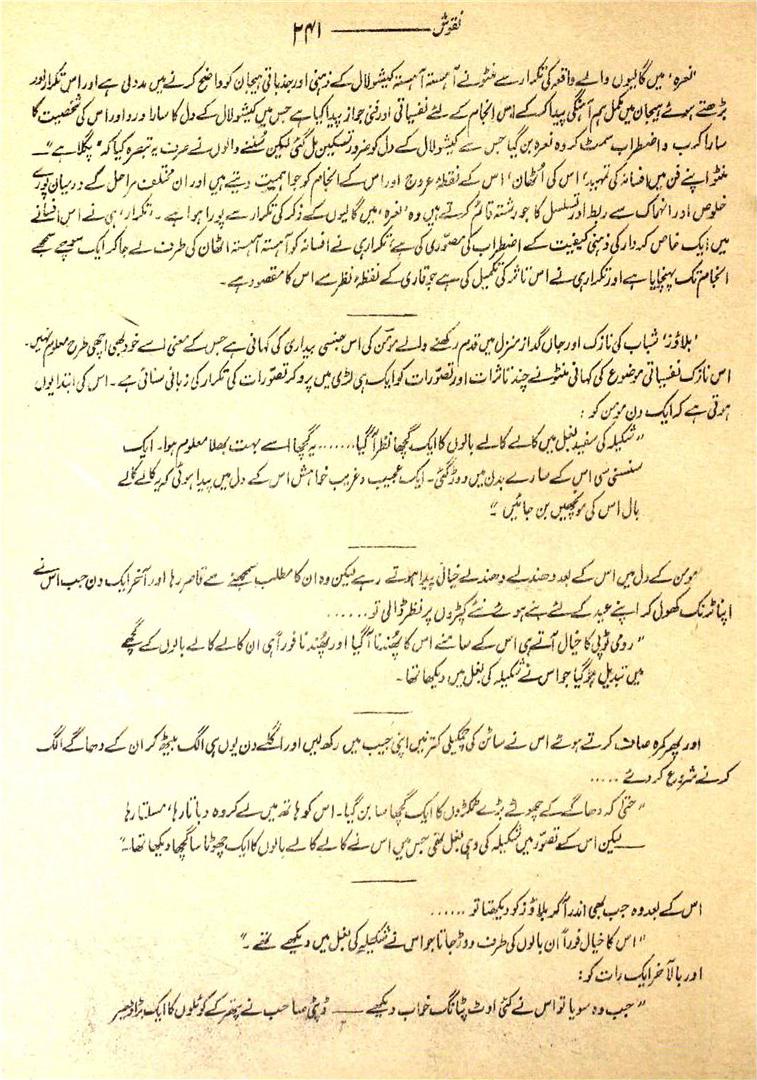 نقوش ——— ۲۴۱
’نعرہ‘ میں گالیوں والے واقعہ کی تکرار سے منٹو نے آہستہ آہستہ کیشولال کے ذہنی اور جذباتی ہیجان کو واضح کرنے میں مدد لی ہے اور اس تکرار اور
بڑھتے ہوئے ہیجان میں مکمل ہم آہنگی پیدا کر کے اس انجام کے لئے نفسیاتی اور فنی جواز پیدا کیا ہے جس میں کیشولال کے دل کا سارا درد اور اس کی شخصیت کا
سارا کرب و اضطراب سمٹ کر وہ نعرہ بن گیا جس سے کیشولال کے دل کو ضرور تسکین مل گئی لیکن سُننے والوں نے صرف یہ تبصرہ کیا کہ ”پگلا ہے“ —
منٹو اپنے فن میں افسانہ کی تمہید، اس کی اُٹھان، اس کے نقطۂ عروج اور اس کے انجام کو جو اہمیت دیتے ہیں اور ان مختلف مراحل کے درمیان پورے
خلوص اور انہماک سے ربط اور تسلسل کا جو رشتہ قائم کرتے ہیں وہ ’نعرہ‘ میں گالیوں کے ذکر کی تکرار سے پورا ہوا ہے ۔ ’تکرار‘ ہی نے اس افسانے
میں ایک خاص کردار کی ذہنی کیفیت کے اضطراب کی مصوّری کی ہے، تکرار ہی نے افسانہ کو آہستہ آہستہ اٹھان کی طرف لے جا کر ایک سوچے سمجھے
انجام تک پہنچایا ہے اور تکرار ہی نے اس تاثر کی تکمیل کی ہے جو قاری کے نقطۂ نظر سے اس کا مقصود ہے ۔
’بلاؤز‘ شباب کی نازک اور جاں گداز منزل میں قدم رکھنے والے مومن کی اس جنسی بیداری کی کہانی ہے جس کے معنی اسے خود بھی اچھی طرح معلوم نہیں۔
اس نازک نفسیاتی موضوع کی کہانی منٹو نے چند تاثرات اور تصوّرات کو ایک ہی لڑی میں پرو کر تصوّرات کی تکرار کی زبانی سنائی ہے ۔ اس کی ابتدا یوں
ہوتی ہے کہ ایک دن مومن کو :
”شکیلہ کی سفید بغل میں کالے کالے بالوں کا ایک گچھا نظر آ گیا ....... یہ گچھا اسے بہت بھلا معلوم ہوا۔ ایک
سنسنی سی اس کے سارے بدن میں دوڑ گئی ۔ ایک عجیب و غریب خواہش اس کے دل میں پیدا ہوئی کہ یہ کالے کالے
بال اس کی مونچھیں بن جائیں ۔“
مومن کے دل میں اس کے بعد دھندلے دھندلے خیال پیدا ہوتے رہے لیکن وہ ان کا مطلب سمجھنے سے قاصر رہا اور آخر ایک دن جب اس نے
اپنا ٹرنک کھولی کہ اپنے عید کے لئے بنے ہوئے نئے کپڑوں پر نظر ڈالی تو ......
”رومی ٹوپی کا خیال آتے ہی اس کے سامنے اس کا پھُندنا آ گیا اور پھُندنا فوراً ہی ان کالے کالے بالوں کے گچھے
میں تبدیل ہو گیا جو اس نے شکیلہ کی بغل میں دیکھا تھا ۔
اور پھر کمرہ صاف کرتے ہوئے اس نے ساٹن کی چمکیلی کترنیں اپنی جیب میں رکھ لیں اور اگلے دن یوں ہی الگ بیٹھ کر ان کے دھاگے الگ
کرنے شروع کر دئے .....
”حتیٰ کہ دھاگے کے چھوٹے بڑے ٹکڑوں کا ایک گچھا سا بن گیا ۔ اس کو ہاتھ میں لے کر وہ دباتا رہا، مسلتا رہا
— لیکن اس کے تصوّر میں شکیلہ کی وہی بغل تھی جس میں اس نے کالے کالے بالوں کا ایک چھوٹا سا گچھا دیکھا تھا ۔“
اس کے بعد وہ جب بھی اندر آ کر بلاؤز کو دیکھتا تو ......
”اس کا خیال فوراً ان بالوں کی طرف دوڑ جاتا جو اس نے شکیلہ کی بغل میں دیکھے تھے ۔“
اور بالآخر ایک رات کو :
”جب وہ سویا تو اس نے کئی اوٹ پٹانگ خواب دیکھے — ڈپٹی صاحب نے پتھر کے کوئلوں کا ایک بڑا ڈھیر